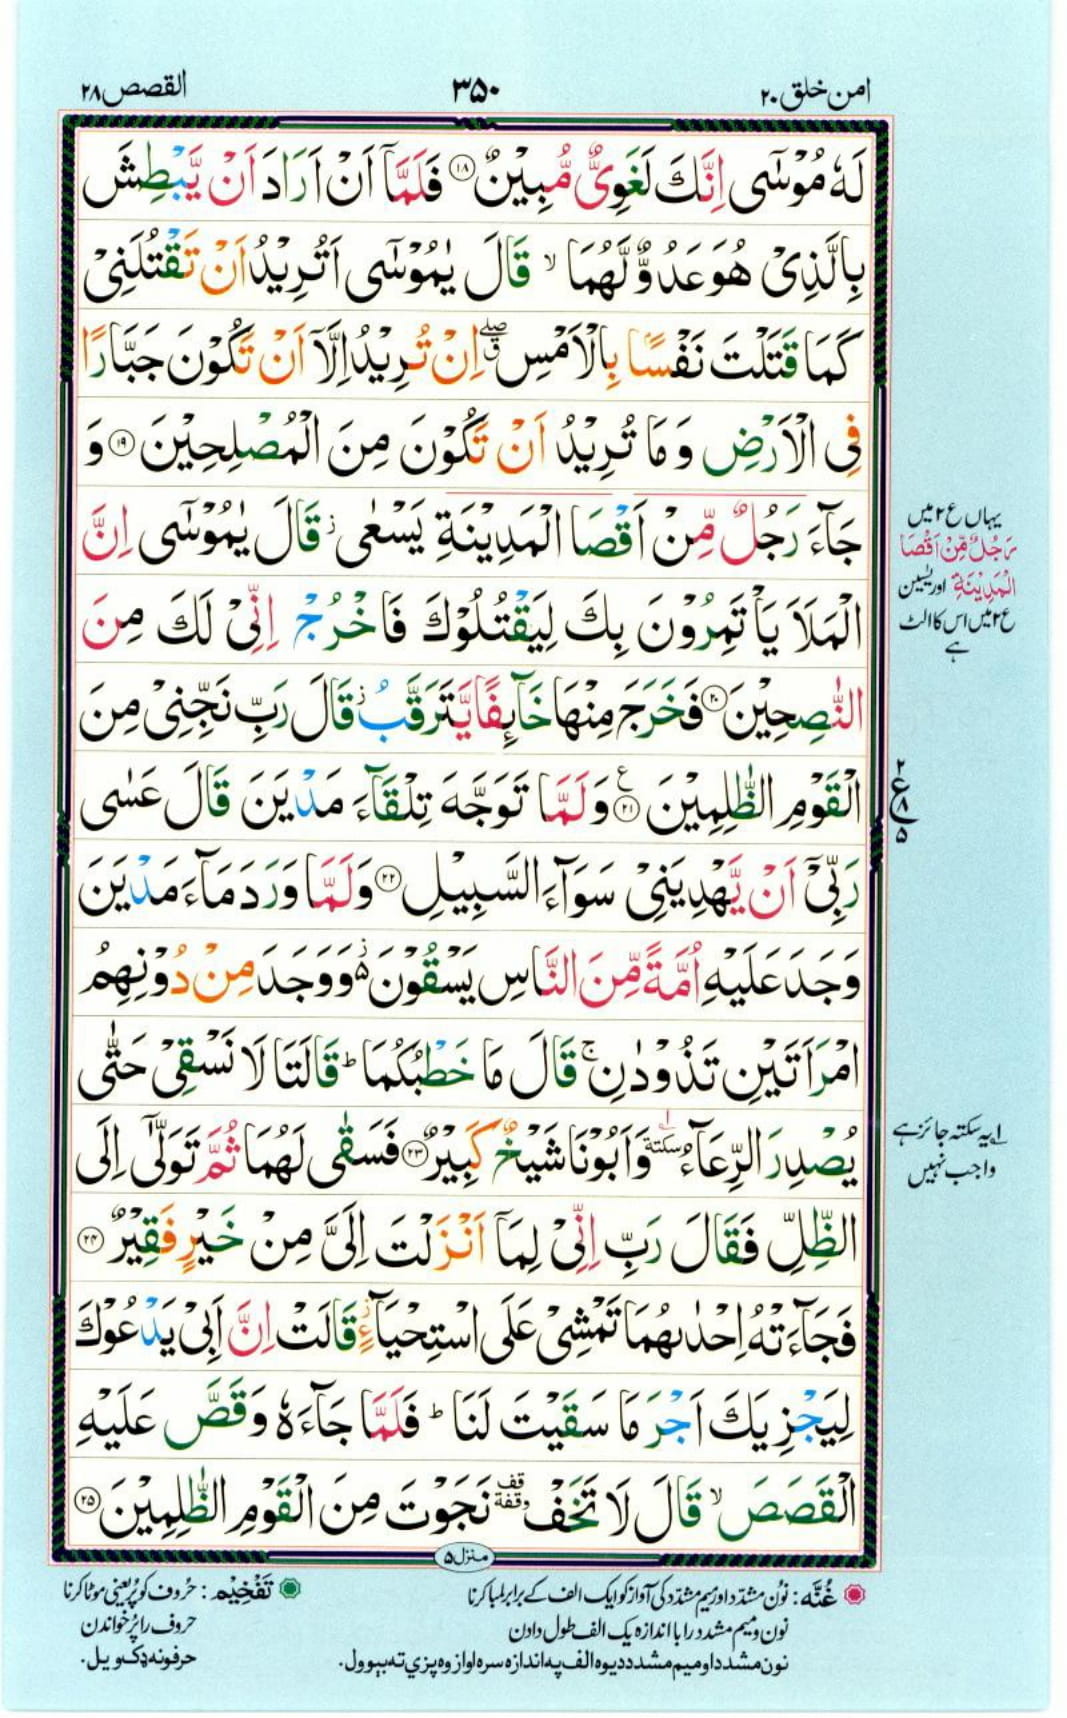 امن خلق ۲۰
۳۵۰
القصص ۲۸
لَهٗ مُوْسٰۤی اِنَّكَ لَغَوِیٌّ مُّبِیْنٌ ۝۱۸ فَلَمَّاۤ اَنْ اَرَادَ اَنْ یَّبْطِشَ
بِالَّذِیْ هُوَ عَدُوٌّ لَّهُمَا ۙ قَالَ یٰمُوْسٰۤی اَتُرِیْدُ اَنْ تَقْتُلَنِیْ
كَمَا قَتَلْتَ نَفْسًۢا بِالْاَمْسِ ۖۗ اِنْ تُرِیْدُ اِلَّاۤ اَنْ تَكُوْنَ جَبَّارًا
فِی الْاَرْضِ وَ مَا تُرِیْدُ اَنْ تَكُوْنَ مِنَ الْمُصْلِحِیْنَ ۝۱۹ وَ
جَآءَ رَجُلٌ مِّنْ اَقْصَا الْمَدِیْنَةِ یَسْعٰی ؗ قَالَ یٰمُوْسٰۤی اِنَّ
الْمَلَاَ یَاْتَمِرُوْنَ بِكَ لِیَقْتُلُوْكَ فَاخْرُجْ اِنِّیْ لَكَ مِنَ
النّٰصِحِیْنَ ۝۲۰ فَخَرَجَ مِنْهَا خَآىِٕفًا یَّتَرَقَّبُ ؗ قَالَ رَبِّ نَجِّنِیْ مِنَ
الْقَوْمِ الظّٰلِمِیْنَ ۝۲۱ ع وَ لَمَّا تَوَجَّهَ تِلْقَآءَ مَدْیَنَ قَالَ عَسٰی
رَبِّیْۤ اَنْ یَّهْدِیَنِیْ سَوَآءَ السَّبِیْلِ ۝۲۲ وَ لَمَّا وَرَدَ مَآءَ مَدْیَنَ
وَجَدَ عَلَیْهِ اُمَّةً مِّنَ النَّاسِ یَسْقُوْنَ ؗ۬ وَ وَجَدَ مِنْ دُوْنِهِمُ
امْرَاَتَیْنِ تَذُوْدٰنِ ۚ قَالَ مَا خَطْبُكُمَا ؕ قَالَتَا لَا نَسْقِیْ حَتّٰی
یُصْدِرَ الرِّعَآءُ سكتة وَ اَبُوْنَا شَیْخٌ كَبِیْرٌ ۝۲۳ فَسَقٰی لَهُمَا ثُمَّ تَوَلّٰۤی اِلَی
الظِّلِّ فَقَالَ رَبِّ اِنِّیْ لِمَاۤ اَنْزَلْتَ اِلَیَّ مِنْ خَیْرٍ فَقِیْرٌ ۝۲۴
فَجَآءَتْهُ اِحْدٰىهُمَا تَمْشِیْ عَلَی اسْتِحْیَآءٍ ؗ قَالَتْ اِنَّ اَبِیْ یَدْعُوْكَ
لِیَجْزِیَكَ اَجْرَ مَا سَقَیْتَ لَنَا ؕ فَلَمَّا جَآءَهٗ وَ قَصَّ عَلَیْهِ
الْقَصَصَ ۙ قَالَ لَا تَخَفْ قف وقفة نَجَوْتَ مِنَ الْقَوْمِ الظّٰلِمِیْنَ ۝۲۵
یہاں ع ۲ میں
رَجُلٌ مِّنْ اَقْصَا
الْمَدِیْنَةِ اور یٰسین
ع ۲ میں اس کا الٹ
ہے
۲
ع ۸
۵
۱ یہ سکتہ جائز ہے
واجب نہیں
منزل ۵
غُنَّه : نون مشدّد اور میم مشدّد کی آواز کو ایک الف کے برابر لمبا کرنا
نون و میم مشدد را با اندازه یک الف طول دادن
نون مشدد او میم مشدد دیوه الف په اندازه سره اواز وه پزي ته بېوول.
تَفْخِیْم : حروف کو پُر یعنی موٹا کرنا
حروف را پُر خواندن
حرفونه ډک ویل.